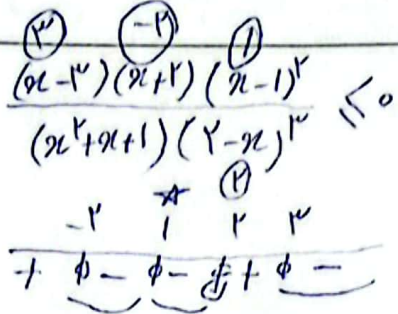 ۳ -۲ ۱
(x-۳)(x+۲)(x-۱)^۲
(x^۲+x+۱)(۲-x)^۳ ≤ ۰
۲
-۲ ۱ ۲ ۳
+ ϕ - ϕ - + ϕ -